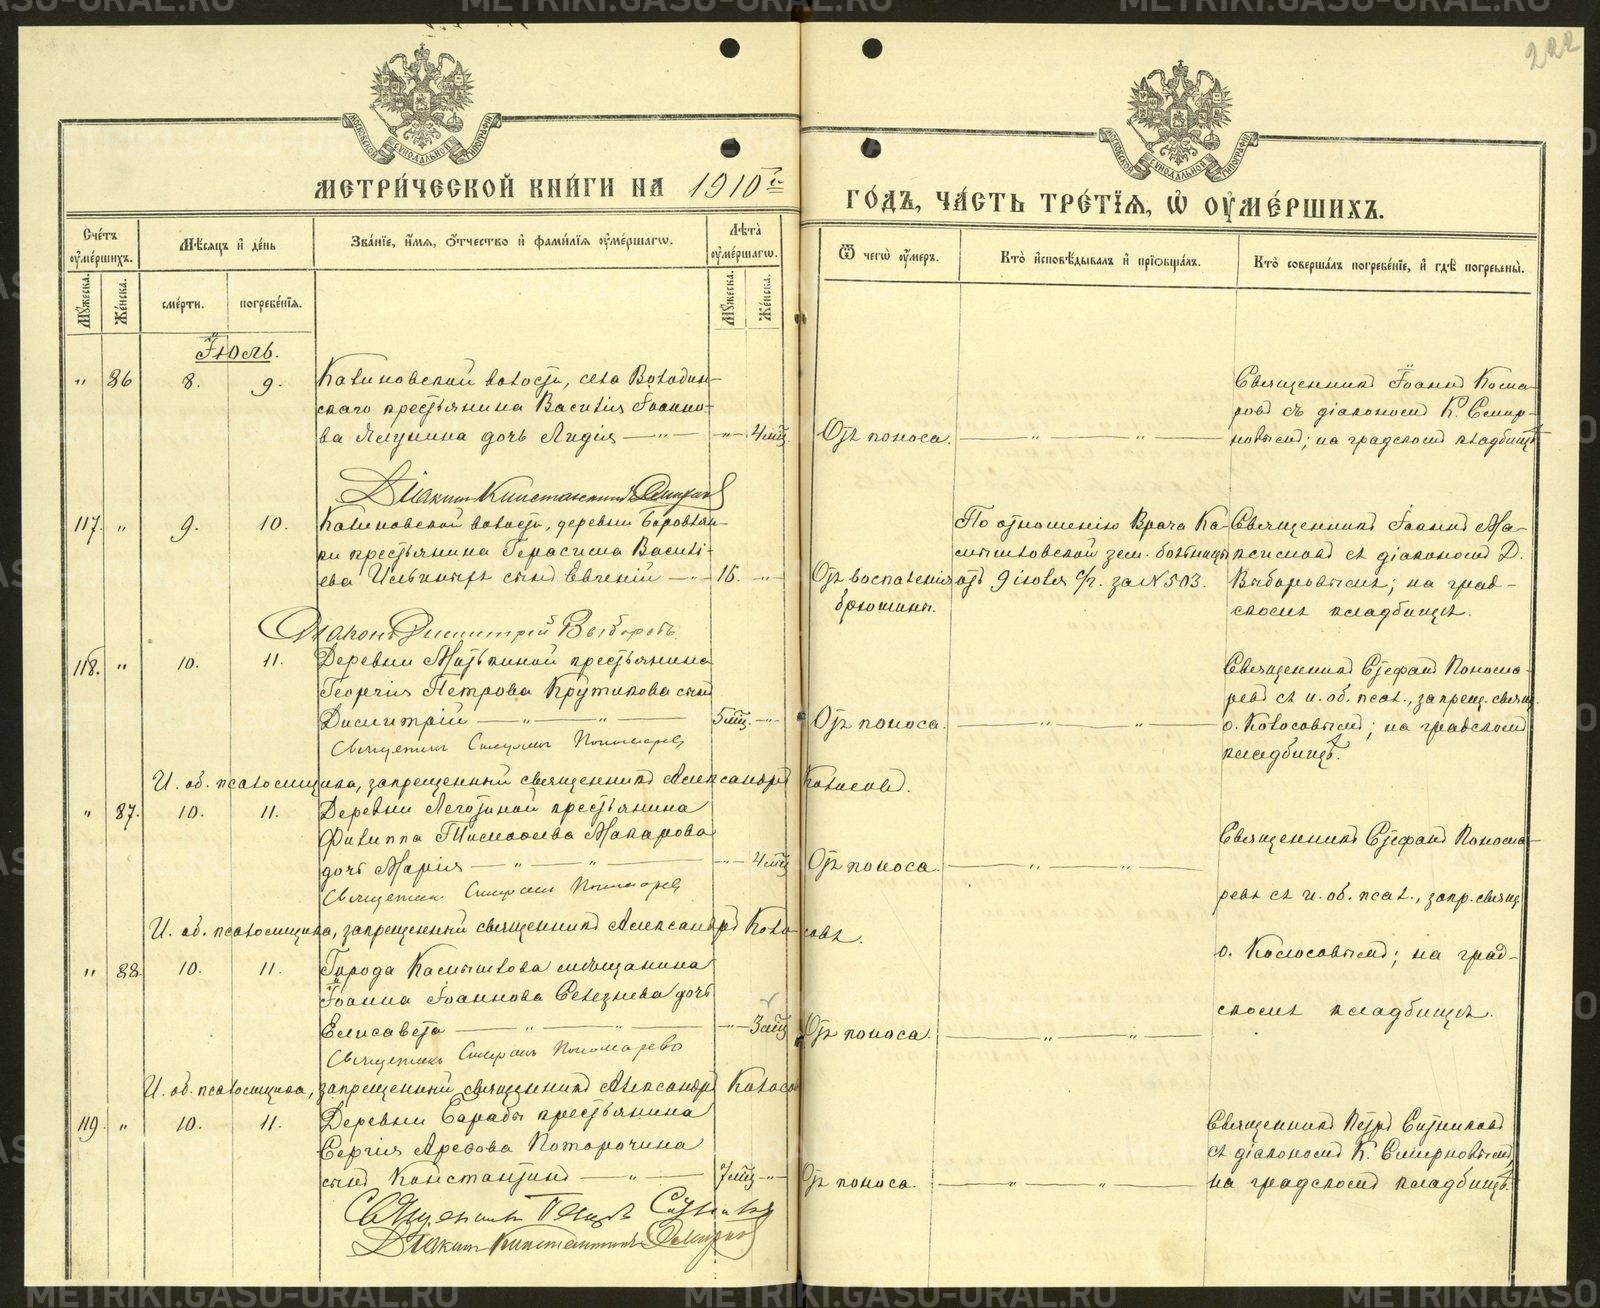 222
МОСКОВСКОЙ СѴНОДАЛЬНОЙ ТИПОГРАФІИ
МОСКОВСКОЙ СѴНОДАЛЬНОЙ ТИПОГРАФІИ
МЕТРИ́ЧЕСКОЙ КНИ́ГИ НА 1910й
ГО́ДЪ, ЧА́СТЬ ТРЕ́ТЇѦ, Ѡ҆ ОУ҆МЕ́РШИХЪ.
Сче́тъ оу҆ме́ршихъ.
Мѣ́сяцъ и҆ де́нь
Зва́нїе, и҆́мѧ, ѻ҆́тчество и҆ фами́лїѧ оу҆ме́ршагѡ.
Лѣ́та оу҆ме́ршагѡ.
Ѿ чегѡ̀ оу҆́меръ.
Кто̀ и҆сповѣ́дывалъ и҆ прїѡбща́лъ.
Кто̀ соверша́лъ погребе́нїе, и҆ гдѣ̀ погребены̀.
Мꙋ́жеска. Же́нска. сме́рти. погребе́нїѧ. Мꙋ́жеска. Же́нска.
Іюль.
" 86 8. 9. Калиновской волости, села Володин-
скаго крестьянина Василія Іоанно-
ва Ялунина дочь Лидія — " — — " — 4 мѣс.
Отъ поноса. — " — " —
Священникъ Іоаннъ Кома-
ровъ съ діакономъ К. Смир-
новымъ; на градскомъ кладбищѣ
Діаконъ Константинъ Смирновъ
117. " 9. 10. Калиновской волости, деревни Боровлян-
ки крестьянина Герасима Василі-
ева Ильиныхъ сынъ Евгеній — " — 15. — " —
Отъ воспаленія
брюшины.
По отношенію Врача Ка-
мышловской зем. больницы
отъ 9 іюля с/г. за № 503.
Священникъ Іоаннъ Ма-
ксимовъ съ діакономъ Д.
Выборовымъ; на град-
скомъ кладбищѣ.
Діаконъ Димитрій Выборовъ.
118. " 10. 11. Деревни Маткиной крестьянина
Георгія Петрова Крутикова сынъ
Димитрій — " — " — 5 мѣс. — " —
Отъ поноса. — " — " —
Священникъ Стефанъ Понома-
ревъ съ и. об. псал., запрещ. свящ.
о. Колосовымъ; на градскомъ
кладбищѣ.
Священникъ Стефанъ Пономаревъ
И. об. псаломщика, запрещенный священникъ Александръ Колосовъ.
" 87. 10. 11. Деревни Леготиной крестьянина
Филиппа Тимофеева Макарова
дочь Марія — " — " — — " — 4 мѣс
Отъ поноса. — " — " —
Священникъ Стефанъ Понома-
ревъ съ и. об. псал., запр. свящ.
о. Колосовымъ; на град-
скомъ кладбищѣ.
Священникъ Стефанъ Пономаревъ
И. об. псаломщика, запрещенный священникъ Александръ Колосовъ.
" 88. 10. 11. Города Камышлова мѣщанина
Іоанна Іоаннова Селезнева дочь
Елисавета — " — " — — " — 3 мѣс
Отъ поноса. — " — " —
Священникъ Стефанъ Пономаревъ
И. об. псаломщика, запрещенный священникъ Александръ Колосо
119. " 10. 11. Деревни Барабы крестьянина
Сергія Арефова Поторочина
сынъ Константинъ — " — 7 мѣс — " —
Отъ поноса. — " — " —
Священникъ Петръ Ситниковъ
съ діакономъ К. Смирновымъ,
на градскомъ кладбищѣ.
Священникъ Петръ Ситниковъ
Діаконъ Константинъ Смирновъ
METRIKI.GASU-URAL.RU